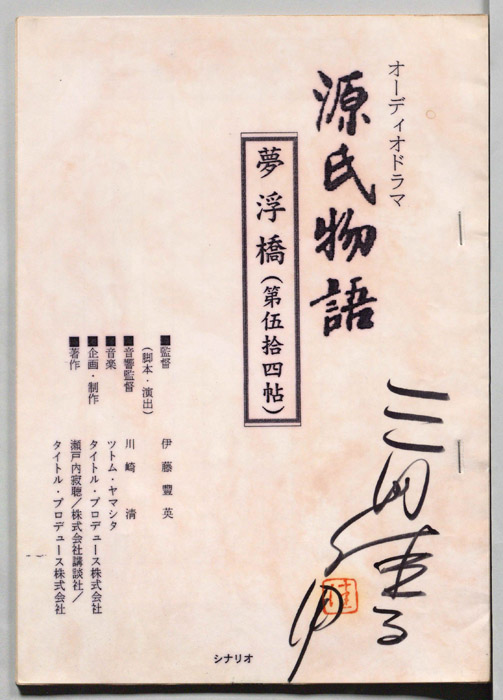 オーディオドラマ
源氏物語
夢浮橋(第伍拾四帖)
■監督 伊藤豐英
(脚本・演出)
■音響監督 川崎 清
■音楽 ツトム・ヤマシタ
■企画・制作 タイトル・プロデュース株式会社
■著作 瀬戸内寂聴/株式会社講談社/
タイトル・プロデュース株式会社
佳
シナリオ